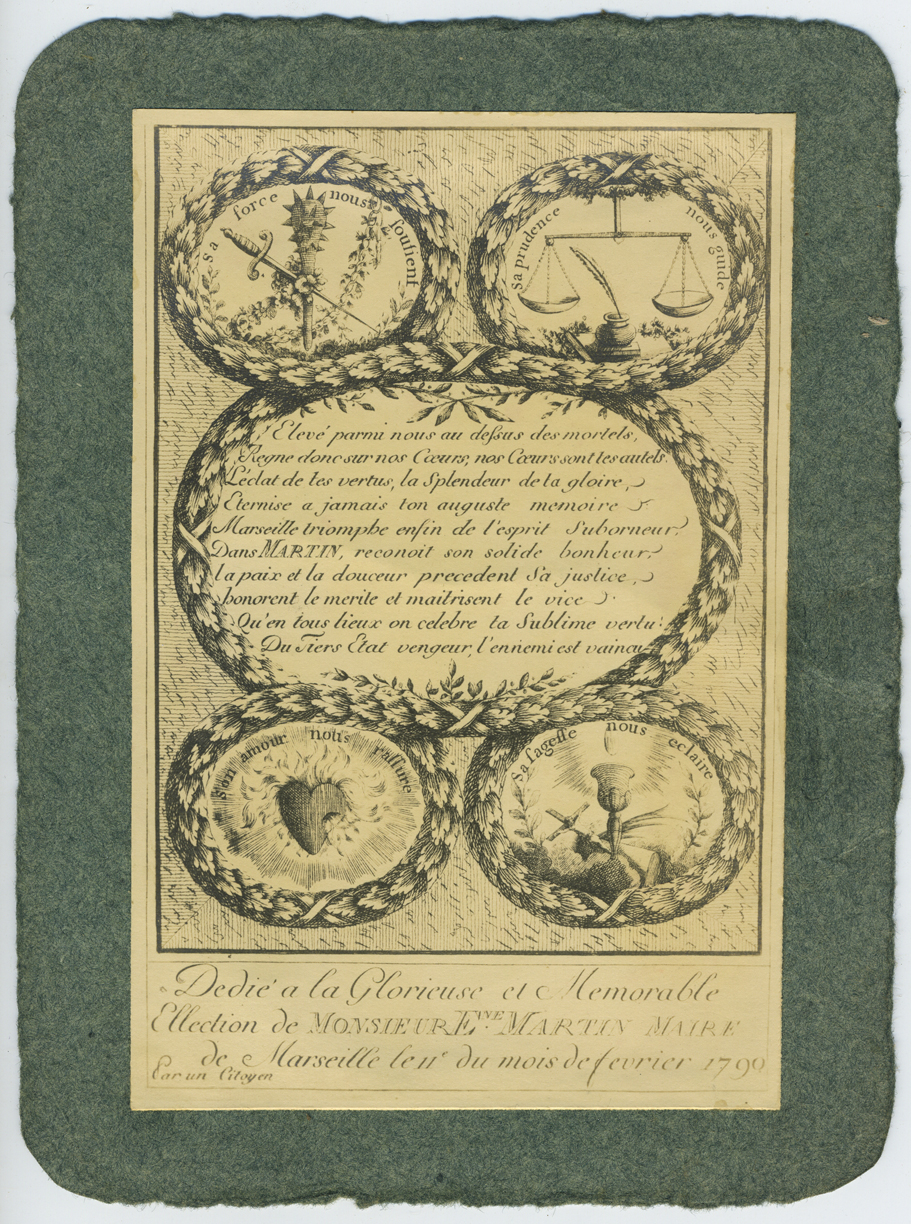 Sa force nous soutient
Sa prudence nous guide
Elevé parmi nous au dessus des mortels,
Regne donc sur nos Cœurs, nos Cœurs sont tes autels.
L'éclat de tes vertus, la Splendeur de ta gloire,
Eternise a jamais ton auguste memoire
Marseille triomphe enfin de l'esprit Suborneur,
Dans MARTIN, reconoit son solide bonheur,
la paix et la douceur precedent Sa justice,
honorent le merite et maitrisent le vice
Qu'en tous lieux on celebre ta Sublime vertu!
Du Tiers Etat vengeur, l'ennemi est vaincu
Son amour nous rassure
Sa sagesse nous eclaire
Dedié a la Glorieuse et Memorable
Ellection de MONSIEUR E^NNE. MARTIN MAIRE
de Marseille le 11e du mois de fevrier 1790
Par un Citoyen